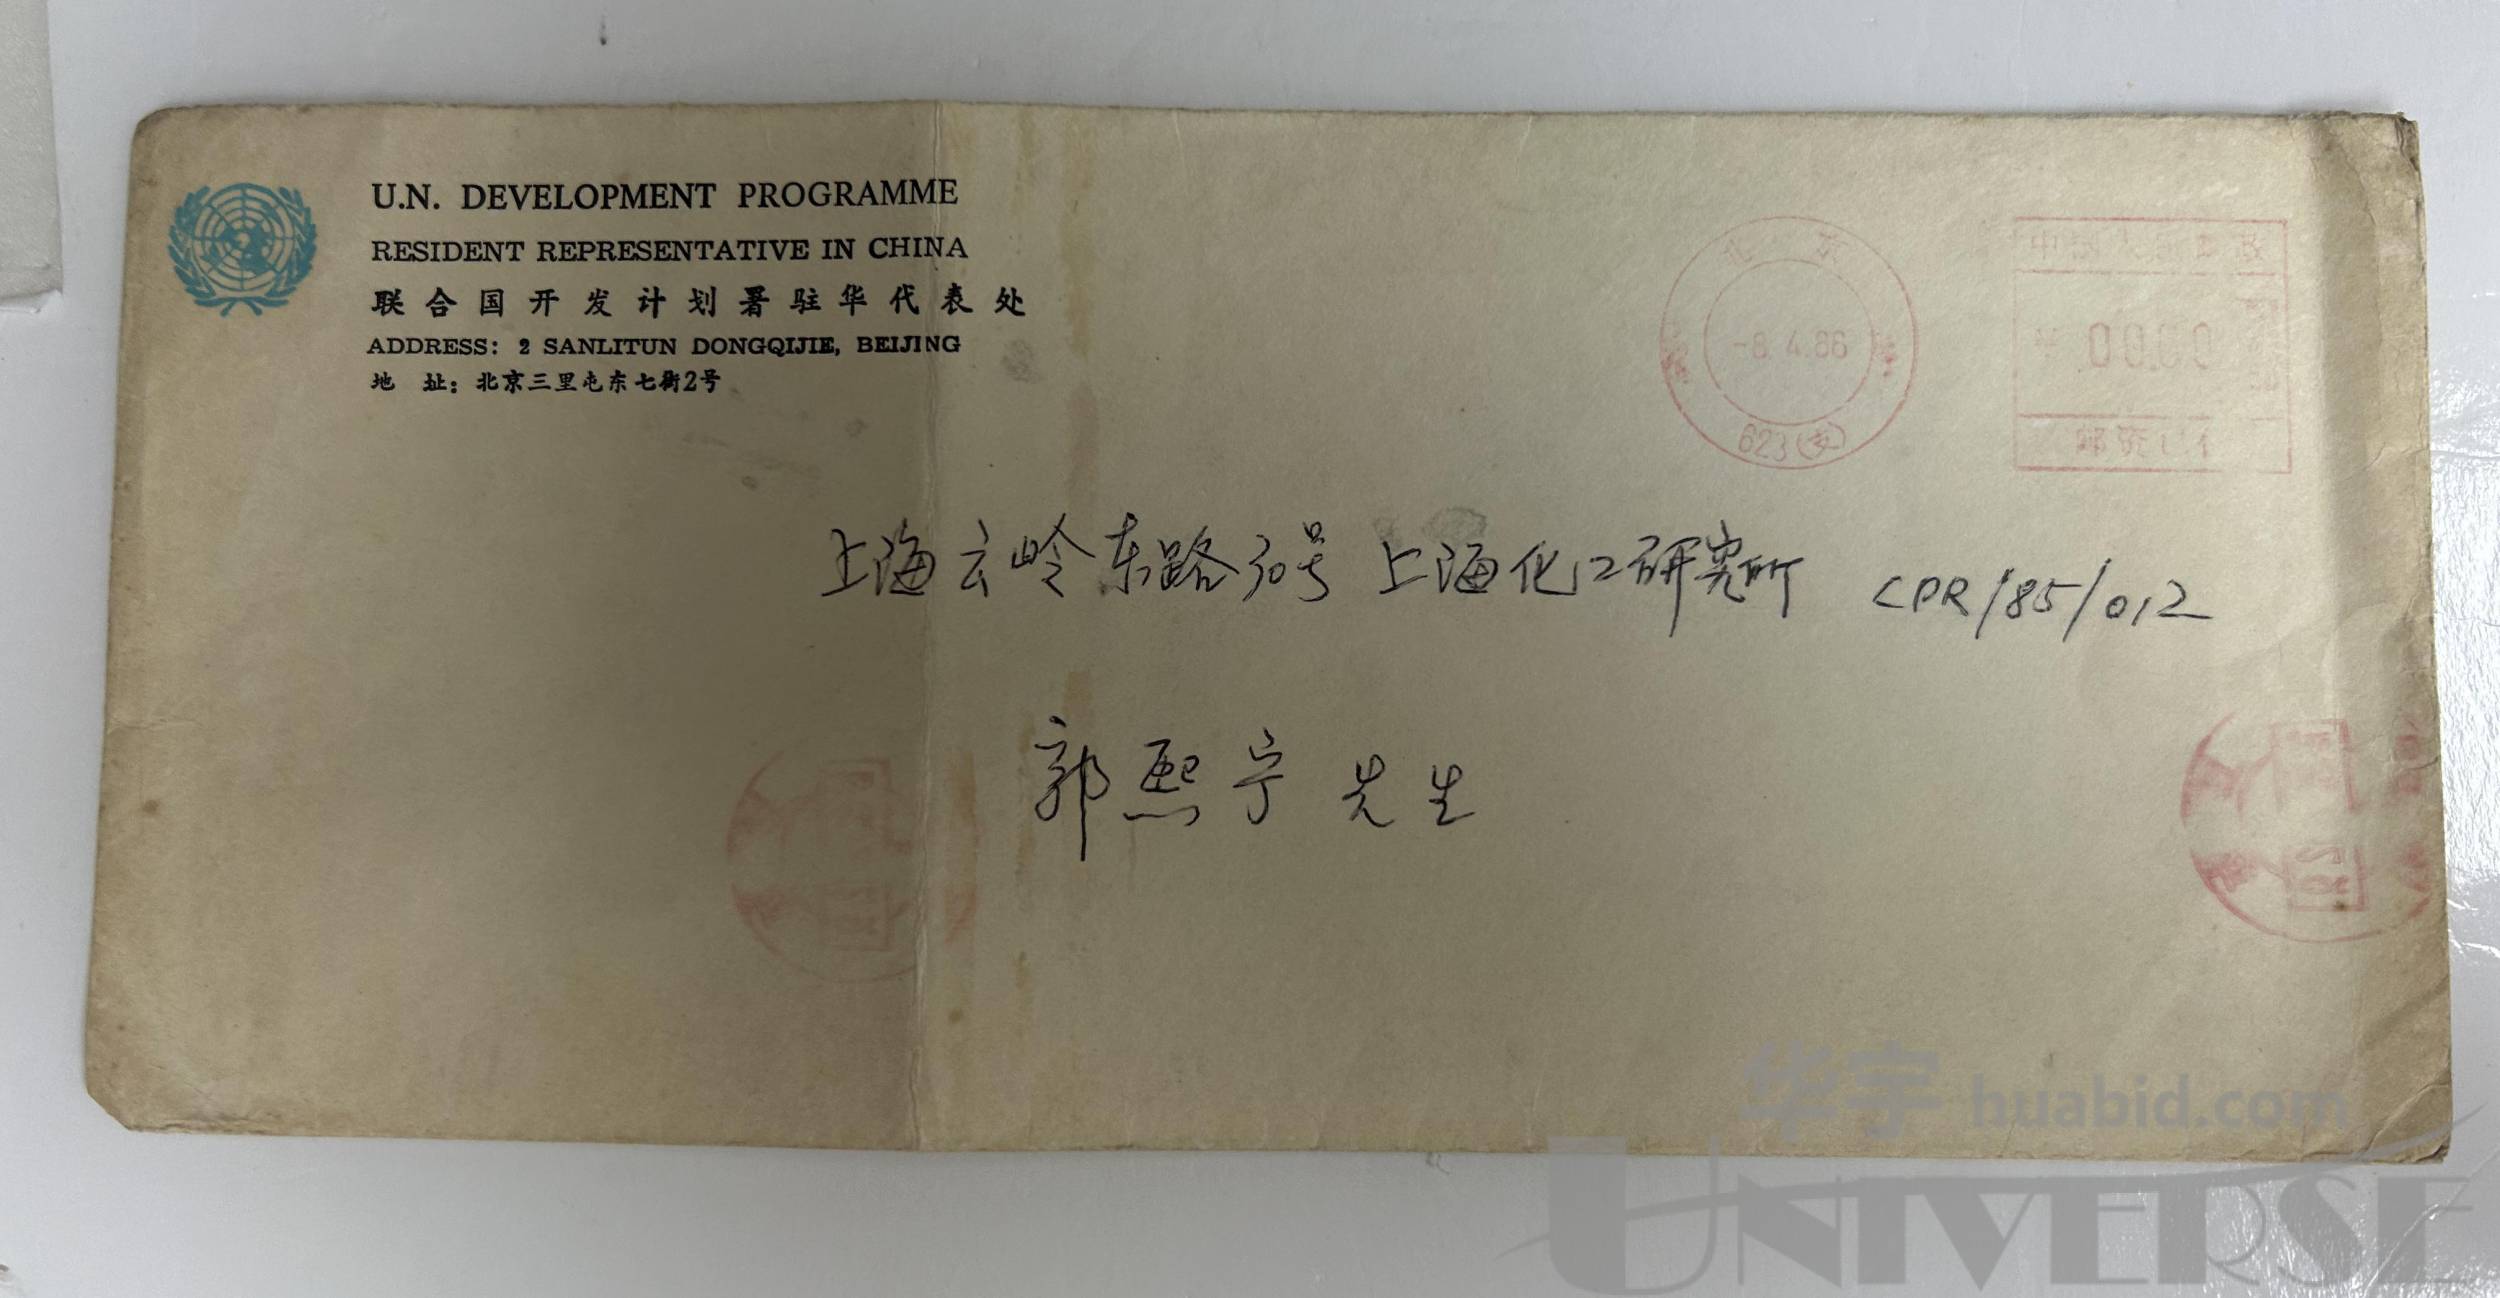 U.N. DEVELOPMENT PROGRAMME
RESIDENT REPRESENTATIVE IN CHINA
联合国开发计划署驻华代表处
ADDRESS: 2 SANLITUN DONGQIJIE, BEIJING
地 址：北京三里屯东七街2号
北 京
-8.4.86
623(支)
中国人民邮政
00.00
邮资已付
上海云岭东路30号 上海化工研究所 CPR/85/012
郭熙宁 先生
华宇 huabid.com
UNIVERSE